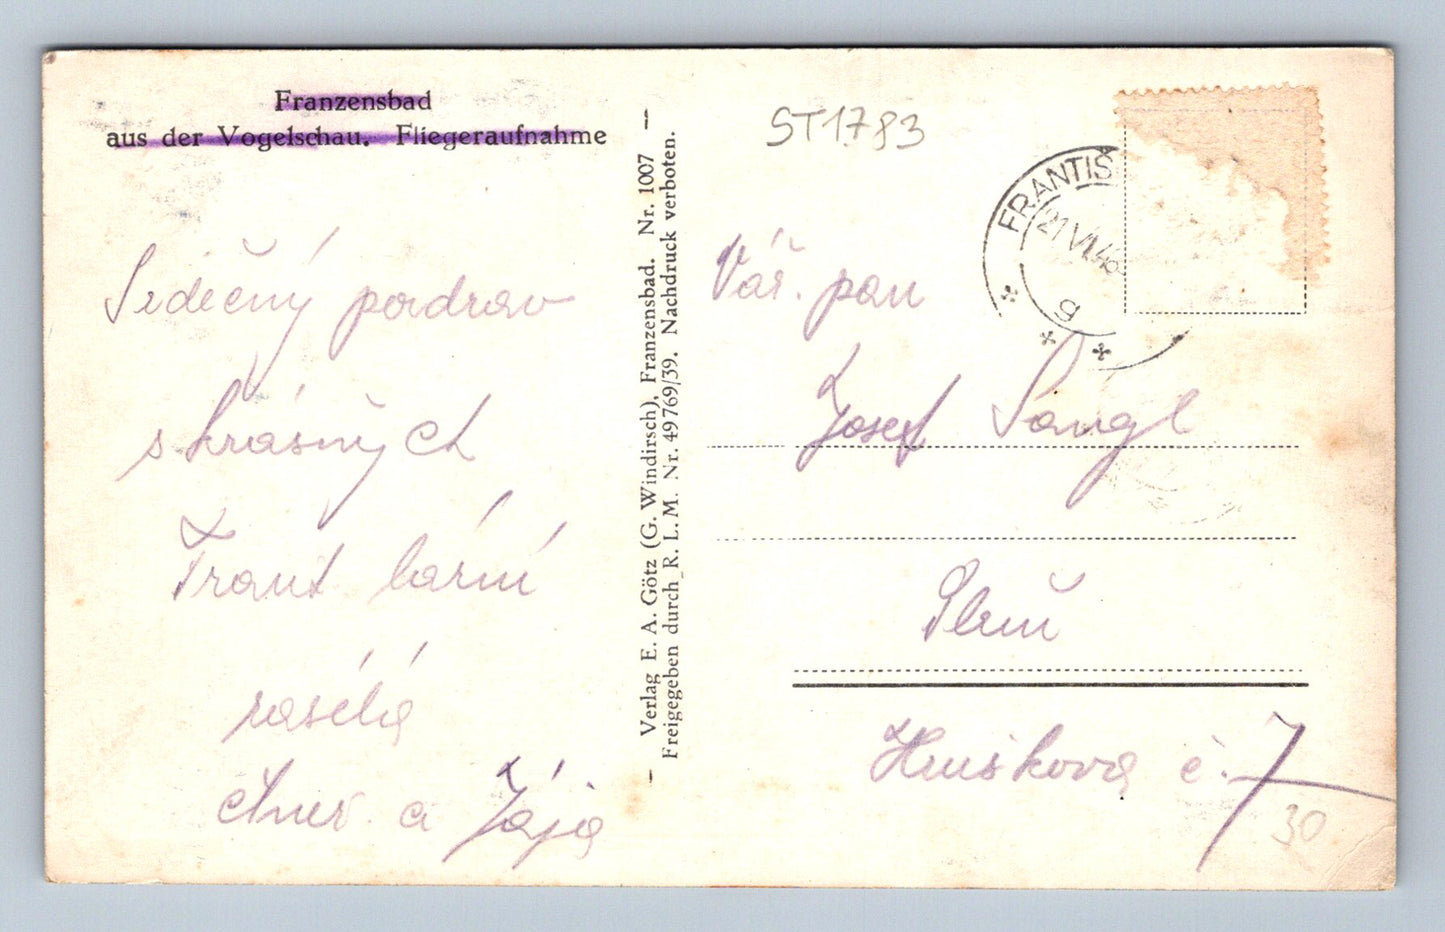 Franzensbad
aus der Vogelschau. Fliegeraufnahme
Srdečný pozdrav
s krásných
Frant lázní
zasílá
a Jája
— Verlag E. A. Götz (G. Windirsch), Franzensbad. Nr. 1007 —
Freigegeben durch R. L. M. Nr. 49769/39. Nachdruck verboten.
ST1783
FRANTIŠ
21 VI.46
g
Váž. pan
Josef Sangl
Plzeň
Husková č. 7
30